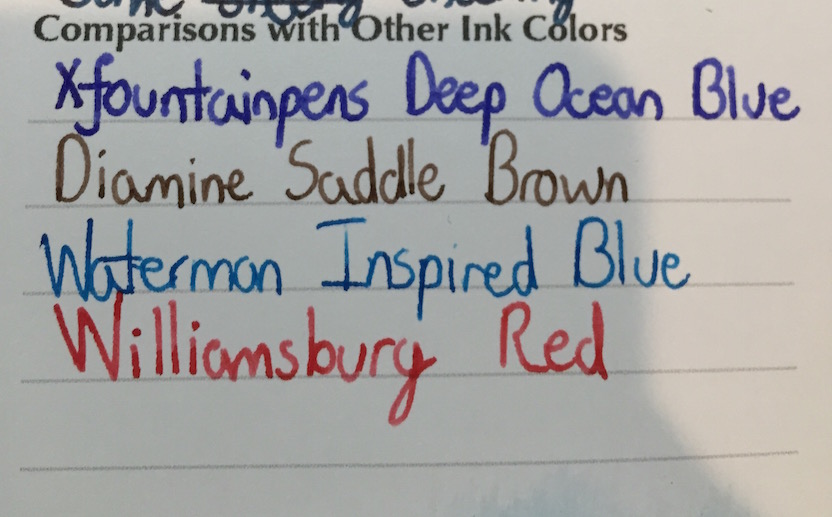 Comparisons with Other Ink Colors
Xfountainpens Deep Ocean Blue
Diamine Saddle Brown
Waterman Inspired Blue
Williamsburg Red